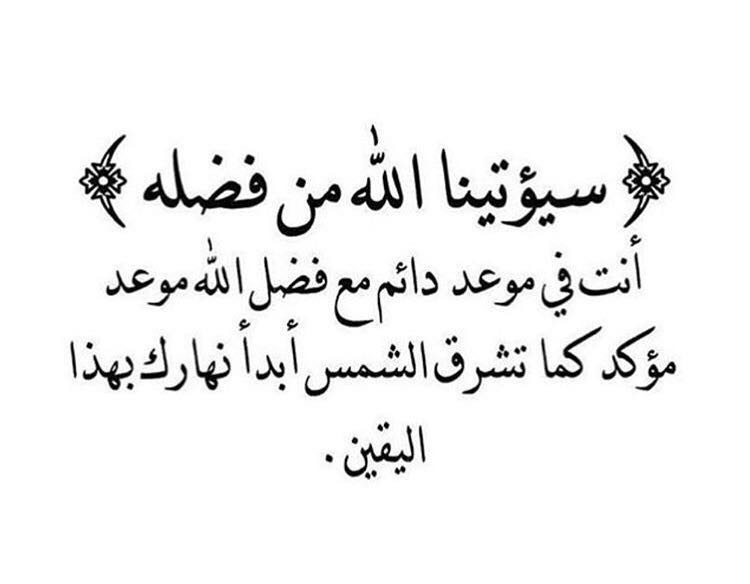 ﴿ سيؤتينا الله من فضله ﴾
أنت في موعد دائم مع فضل الله موعد
مؤكد كما تشرق الشمس أبدأ نهارك بهذا
اليقين .